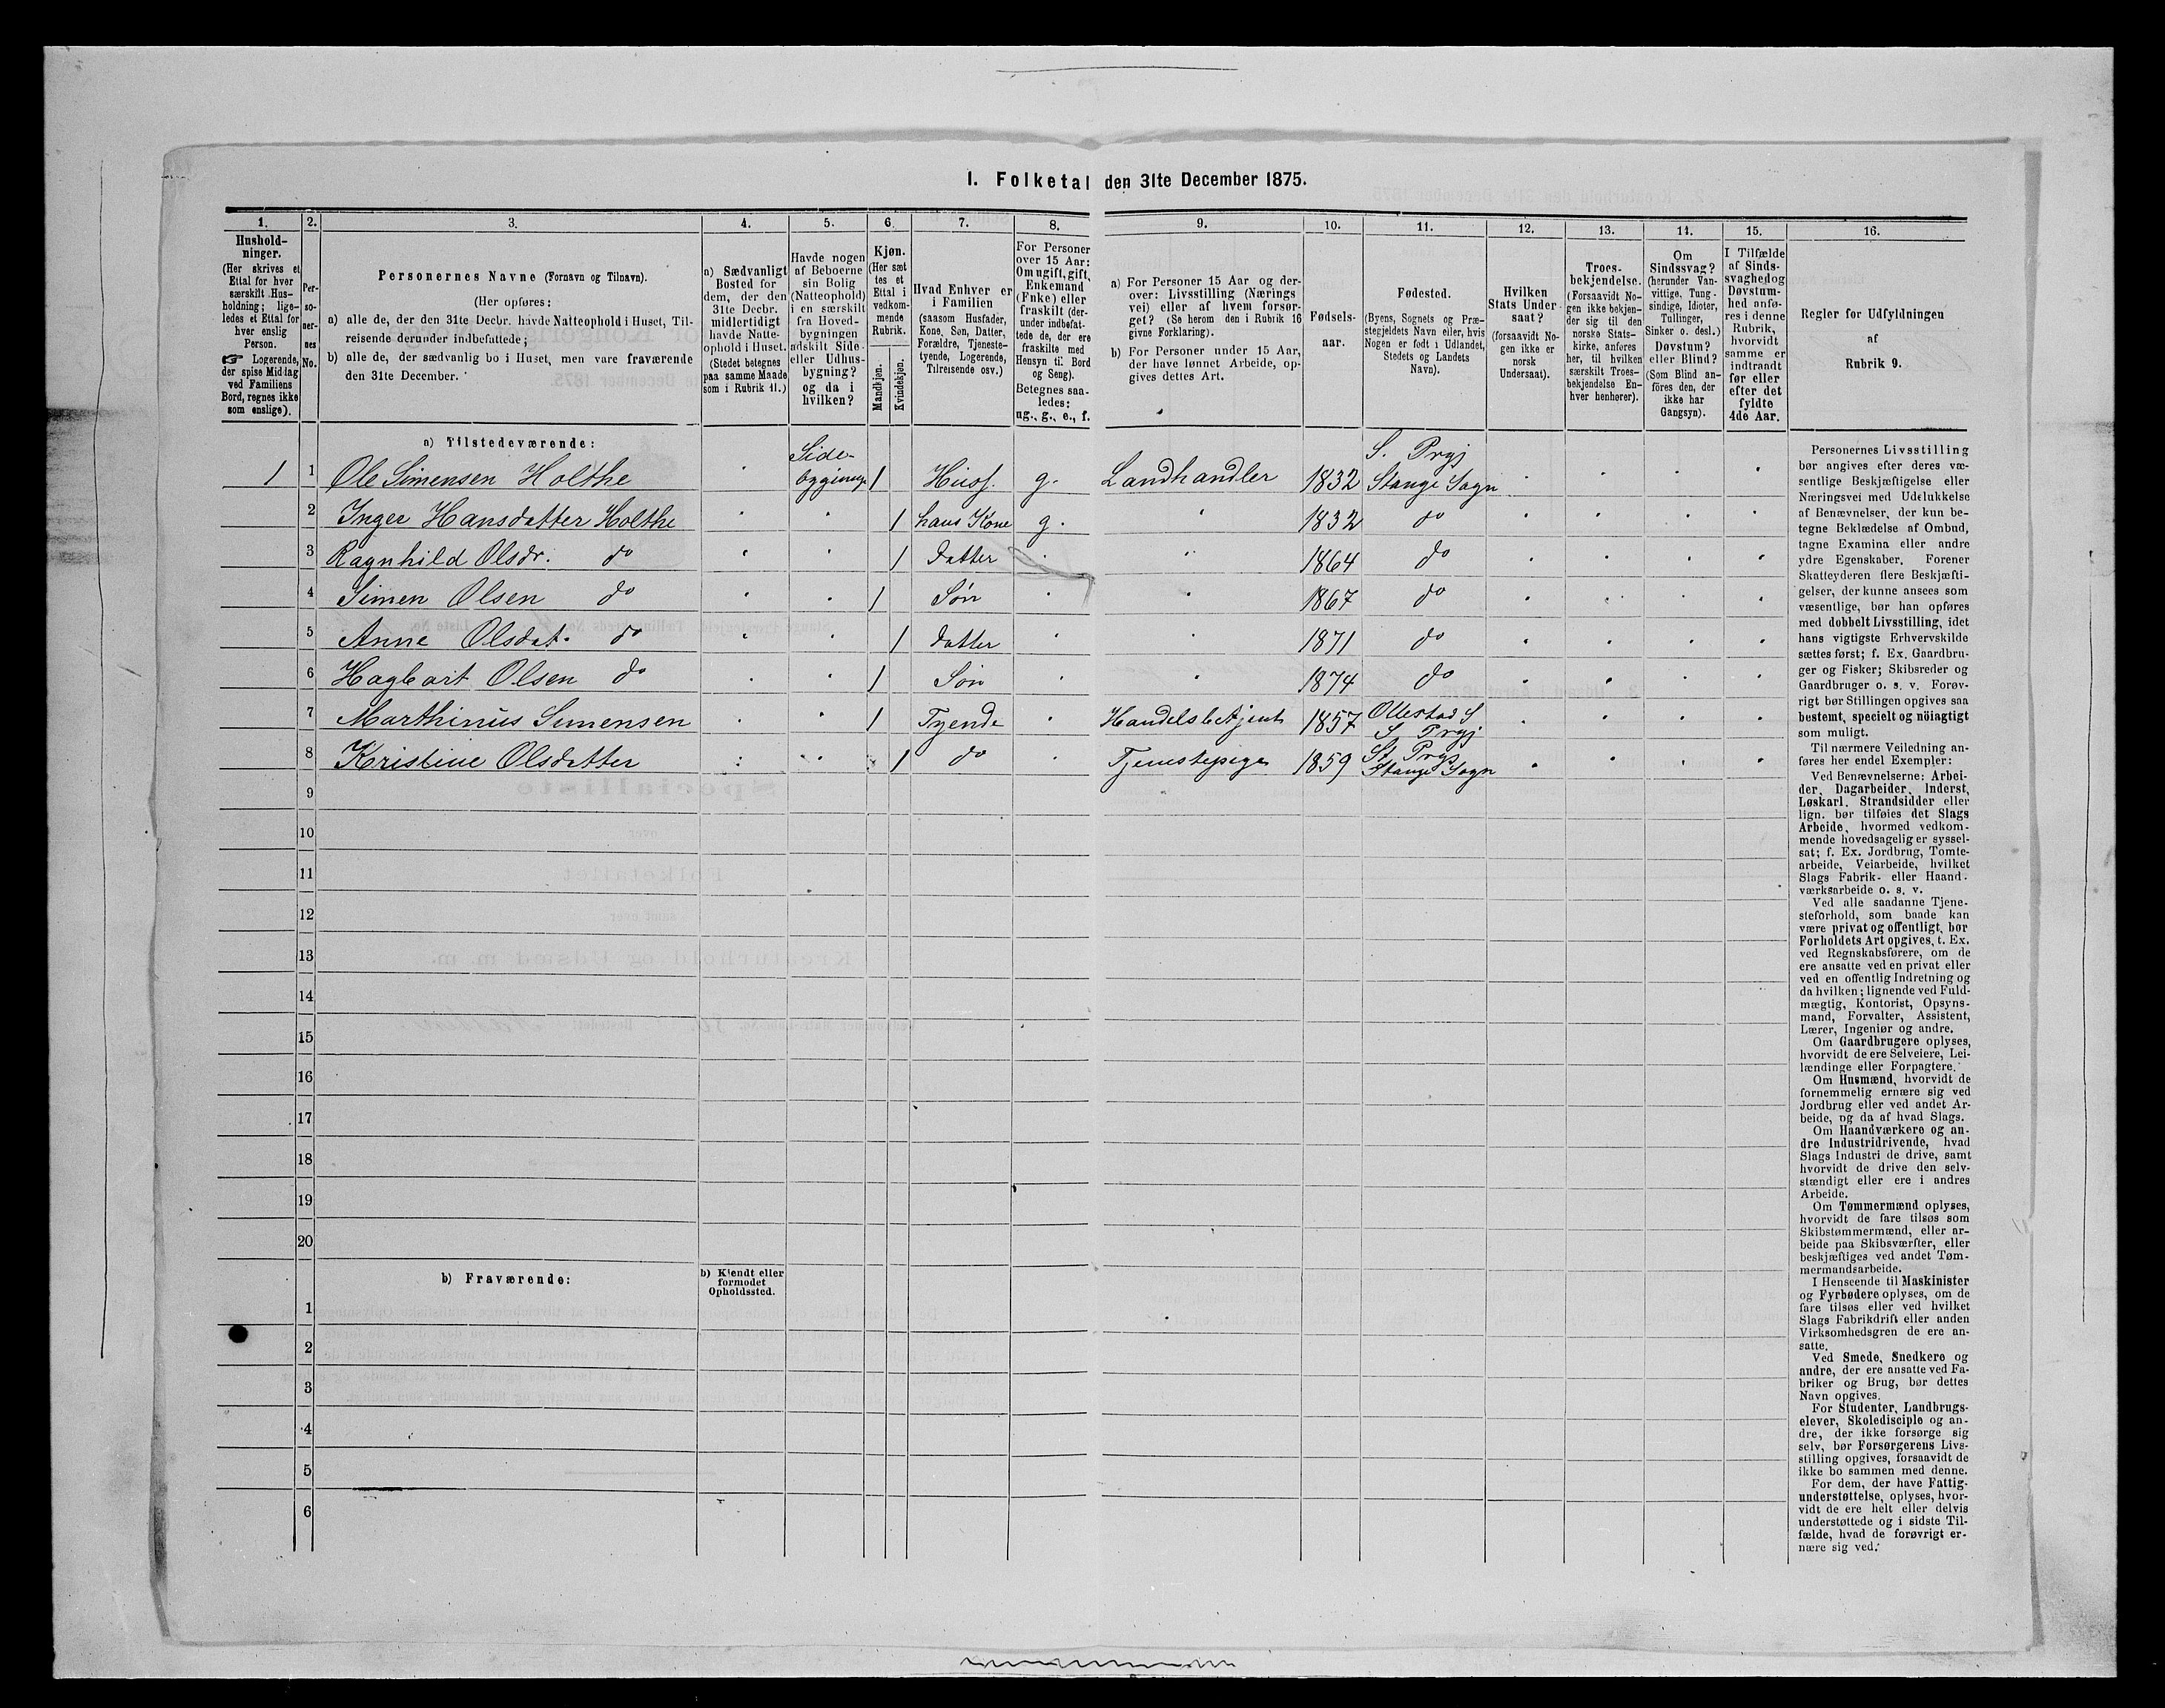 I. Folketal den 31te December 1875.
1.
Hushold-
ninger.
(Her skrives et
Ettal for hver
særskilt Hus-
holdning; lige-
ledes et Ettal for
hver enslig
Person.
☞ Logerende,
der spise Middag
ved Familiens
Bord, regnes ikke
som enslige).
2.
Per-
so-
ner-
nes
No.
3.
Personernes Navne (Fornavn og Tilnavn).
(Her opføres:
a) alle de, der den 31te Decbr. havde Natteophold i Huset, Til-
reisende derunder indbefattede;
b) alle de, der sædvanlig bo i Huset, men vare fraværende
den 31te December.
4.
a) Sædvanligt
Bosted for
dem, der den
31te Decbr.
midlertidigt
havde Natte-
ophold i Huset.
(Stedet betegnes
paa samme Maade
som i Rubrik 11.)
5.
Havde nogen
af Beboerne
sin Bolig
(Natteophold)
i en særskilt
fra Hoved-
bygningen
adskilt Side-
eller Udhus-
bygning?
og da i
hvilken?
6.
Kjøn.
(Her sæt
tes et
Ettal i
vedkom-
mende
Rubrik.
Mandkjøn.
Kvindekjøn.
7.
Hvad Enhver er
i Familien
(saasom Husfader,
Kone, Søn, Datter,
Forældre, Tjeneste-
tyende, Logerende,
Tilreisende osv.)
8.
For Personer
over 15 Aar:
Om ugift, gift,
Enkemand
(Enke) eller
fraskilt (der-
under indbefat-
tede de, der ere
fraskilte med
Hensyn til Bord
og Seng).
Betegnes saa-
ledes:
ug., g., e., f.
9.
a) For Personer 15 Aar og der-
over: Livsstilling (Nærings
vei) eller af hvem forsør-
get? (Se herom den i Rubrik 16
givne Forklaring).
b) For Personer under 15 Aar,
der have lønnet Arbeide, op-
gives dettes Art.
10.
Fødsels-
aar.
11.
Fødested.
(Byens, Sognets og Præ-
stegjeldets Navn eller, hvis
Nogen er født i Udlandet,
Stedets og Landets
Navn).
12.
Hvilken
Stats Under-
saat?
(forsaavidt No-
gen ikke er
norsk
Undersaat).
13.
Troes-
bekjendelse.
(Forsaavidt No-
gen ikke bekjen-
der sig til den
norske Stats-
kirke, anføres
her, til hvilken
særskilt Troes-
bekjendelse En-
hver henhører).
14.
Om
Sindssvag?
(herunder Van-
vittige, Tung-
sindige, Idioter,
Tullinger,
Sinker o. desl.)
Døvstum?
eller Blind?
(Som Blind an-
föres den, der
ikke har
Gangsyn).
15.
I Tilfælde
af Sinds-
svaghed og
Døvstum-
hed anfø-
res i denne
Rubrik,
hvorvidt
samme er
indtrandt
før eller
efter det
fyldte
4de Aar.
16.
Regler for Udfyldningen
af
Rubrik 9.
a) Tilstedeværende:
1 1 Ole Simensen Holthe Side- bygning 1 Husf. g. Landhandler 1832 S. Prgj Stange Sogn
2 Inger Hansdatter Holthe 1 hans Kone g. 1832 do
3 Ragnhild Olsdr. do 1 Datter 1864 do
4 Simen Olsen do 1 Søn 1867 do
5 Anne Olsdat. do 1 Datter 1871 do
6 Hagbart Olsen do 1 Søn 1874 do
7 Marthinus Simensen 1 Tyende Handelsbetjent 1857 Ottestad S S Prgj
8 Kristine Olsdatter 1 do Tjenestepige 1859 St Prgj Stange Sogn
9
10
11
12
13
14
15
16
17
18
19
20
b) Fraværende:
b) Kjendt eller
formodet
Opholdssted.
1
2
3
4
5
6
Personernes Livsstilling
bør angives efter deres væ-
sentlige Beskjæftigelse eller
Næringsvei med Udelukkelse
af Benævnelser, der kun be-
tegne Beklædelse af Ombud,
tagne Examina eller andre
ydre Egenskaber. Forener
Skatteyderen flere Beskjæfti-
gelser, der kunne ansees som
væsentlige, bør han opføres
med dobbelt Livsstilling, idet
hans vigtigste Erhvervskilde
sættes først; f. Ex. Gaardbru-
ger og Fisker; Skibsreder og
Gaardbruger o. s. v. Forøv-
rigt bør Stillingen opgives saa
bestemt, specielt og nöiagtigt
som muligt.
Til nærmere Veiledning an-
føres her endel Exempler:
Ved Benævnelserne: Arbei-
der, Dagarbeider, Inderst,
Løskarl, Strandsidder eller
lign. bør tilføies det Slags
Arbeide, hvormed vedkom-
mende hovedsagelig er syssel-
sat; f. Ex. Jordbrug, Tomte-
arbeide, Veiarbeide, hvilket
Slags Fabrik- eller Haand-
værksarbeide o. s. v.
Ved alle saadanne Tjene-
steforhold, som baade kan
være privat og offentligt, bør
Forholdets Art opgives, t. Ex.
ved Regnskabsførere, om de
ere ansatte ved en privat eller
ved en offentlig Indretning og
da hvilken; lignende ved Fuld-
mægtig, Kontorist, Opsyns-
mand, Forvalter, Assistent,
Lærer, Ingeniør og andre.
Om Gaardbrugere oplyses,
hvorvidt de ere Selveiere, Lei-
lændinge eller Forpagtere.
Om Husmænd, hvorvidt de
fornemmelig ernære sig ved
Jordbrug eller ved andet Ar-
beide, og da af hvad Slags.
Om Haandværkere og an-
dre Industridrivende, hvad
Slags Industri de drive, samt
hvorvidt de drive den selv-
stændigt eller ere i andres
Arbeide.
Om Tømmermænd oplyses,
hvorvidt de fare tilsøs som
Skibstømmermænd, eller ar-
beide paa Skibsværfter, eller
beskjæftiges ved andet Tøm-
mermandsarbeide.
I Henseende til Maskinister
og Fyrbødere oplyses, om de
fare tilsøs eller ved hvilket
Slags Fabrikdrift eller anden
Virksomhedsgren de ere an-
satte.
Ved Smede, Snedkere og
andre, der ere ansatte ved Fa-
briker og Brug, bør dettes
Navn opgives.
For Studenter, Landbrugs-
elever, Skoledisciple og an-
dre, der ikke forsørge sig
selv, bør Forsørgerens Livs-
stilling opgives, forsaavidt de
ikke bo sammen med denne.
For dem, der have Fattig-
understøttelse, oplyses, hvor-
vidt de ere helt eller delvis
understøttede og i sidste Til-
fælde, hvad de forøvrigt er-
nære sig ved.